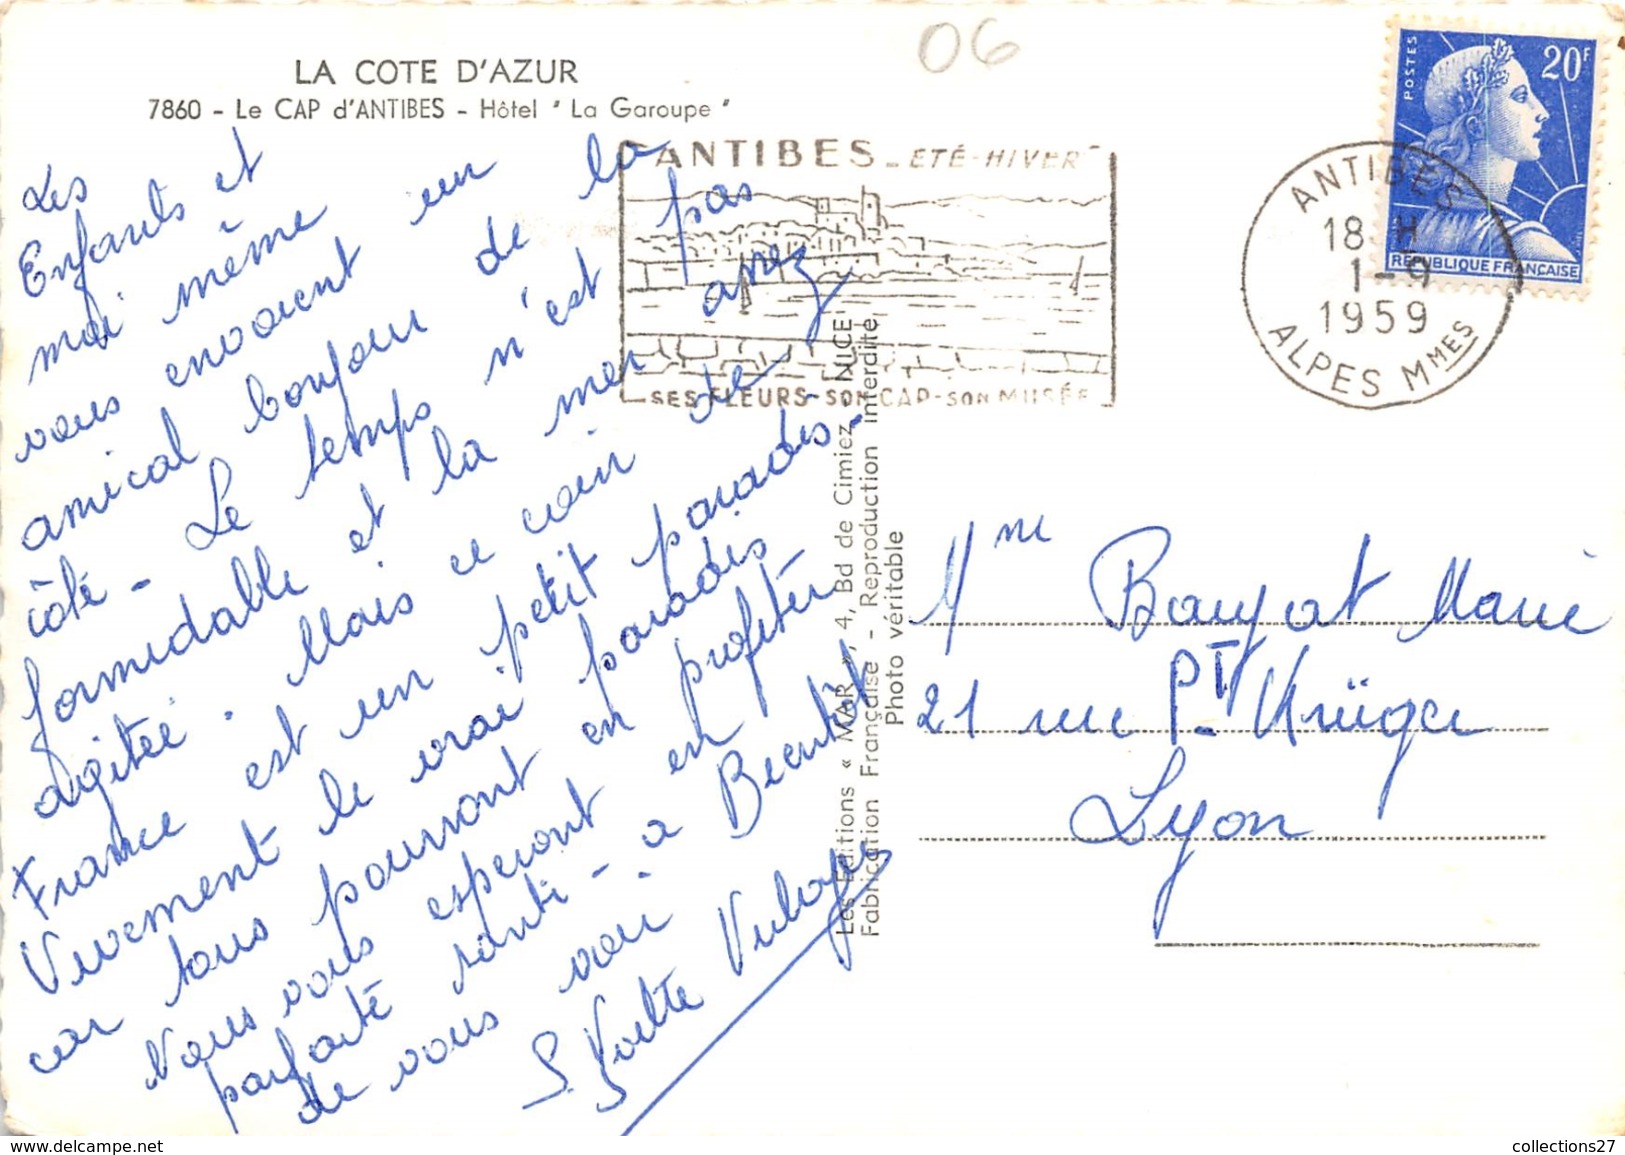 06
LA COTE D'AZUR
7860 - Le CAP d'ANTIBES - Hôtel "La Garoupe"
Les
Enfants et
moi même un
vous envoient la
amical bonjour de
côté - Le temps n'est pas
formidable et la mer assez
agitée. Mais ce coin de
France est un petit paradis -
Vivement le vrai paradis
car tous pourront en profiter
Nous vous esperont en
parfaite santé - a Bientôt
de vous voir.
S.
ANTIBES - ETÉ - HIVER
SES FLEURS - SON CAP - SON MUSÉE
Les Editions « MAR », 4, Bd de Cimiez, NICE
Fabrication Française - Reproduction interdite
Photo véritable
POSTES
20F
REPUBLIQUE FRANÇAISE
ANTIBES
18 H
1-9
1959
ALPES MMES
Mme Bouyat Marie
21 rue Pt Krüger
Lyon
collections27